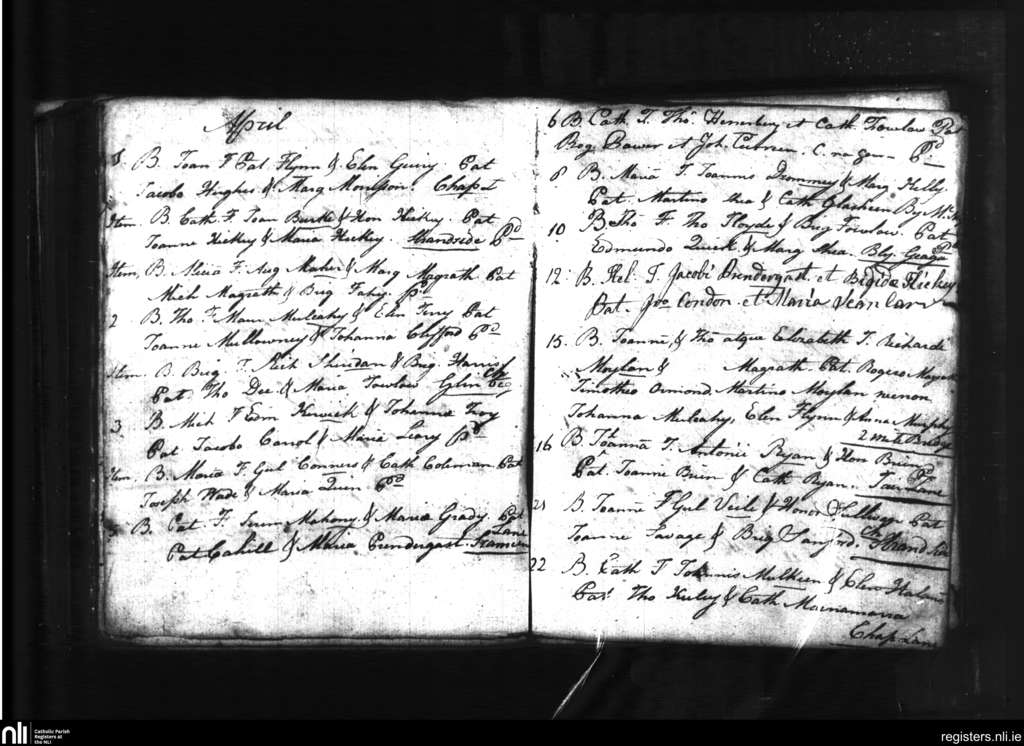 April
B. Joan F Pat Flynn & Elen Guiry Pat
Jacobo Hughes & Marg Morrison. Chap L
Item B Cath F. Joan Burke & Hon Hickey. Pat
Joanne Hickey & Maria Hickey. Strandside Pd
Item, B. Maria F. Aug Maher & Marg Magrath Pat
Mich Magrath & Brig Fahy. Pd
2 B. Tho. F. Maur Mulcahy & Elen Pat
Joanne Mullowney & Johanna Clifford Pd
Item. B. Brig. F. Rich Sheridan & Brig. Harris
Pat. Tho Dee & Maria Fowlow Glin
3 B. Mich F Edm Kirwick & Johanna Troy
Pat Jacobo Carrol & Maria Leary Pd
Item. B. Maria F. Gul Connors & Cath Coleman Pat
Joseph Wade & Maria Quin Pd
B. Pat F. Mahony & Maria Grady. Pat
Pat Cahill & Maria Prendergast. Lane
6 B. Cath F. Tho. et Cath Fowlow Pat
Rog. Power et Joh. Pd
8 B. Maria F. Joannis & Marg. Kelly.
Pat. Martino Shea & Cath
10 B. Tho F. Tho Floyde & Brig Fowlow. Pat
Edmundo Quirk & Marg Shea. Bly.
12 B. Hel. F. Jacobi Prendergast et Brigidæ Hickey
Pat. Jno. Condon et Maria Scanlan
15. B. Joanne, & Tho atque Elizabeth F. Richardi
Moylan & Magrath Pat. Rogero
Timotheo Ormond. Martino Moylan necnon
Johanna Mulcahy, Elen Flynn & Anna Murphy
2 mile Bridge
16 B. Johanna F. Antonii Ryan & Hon Brien
Pat. Joanne Brien & Cath Ryan. Lane
21 B. Joanne F Gul & Honor Sullivan Pat
Joanne Savage & Brig Strand side
22 B. Cath F Joannis Mulkeen & Elen
Pat Tho & Cath Macnamarra
Chap Lane
nli
Catholic Parish
Registers at
the NLI
registers.nli.ie